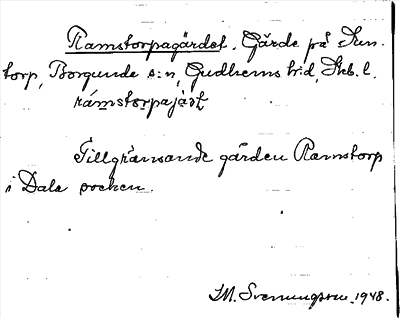 Ramstorpagärdet. Gärde på Sten-
torp, Borgunda s:n, Gudhems hd, Skb. l.
rámstorpajäṣṭ
Tillgränsande gården Ramstorp
i Dala socken.
M. Svenungsson 1948.